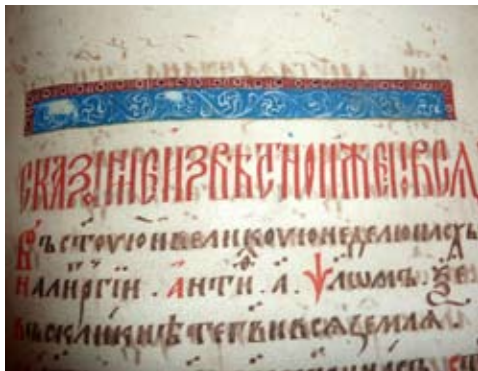 СКАЗАНИЕ ИЗВѢСТНО ИЖЕ ВСѦ
Въ стоую и великоую неделю пасхъ
на лиргїи . анти . а . ѱалѡмъ . ѯе
въскликнѣте гви всѧ землѧ .